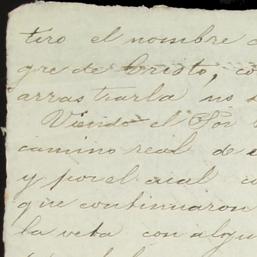 tiro el nombre d
gre de Cristo, co
arrastrarla no s
Viendo el Sor
camino real de e
y por el cual c
que continuaron
la veta con algu